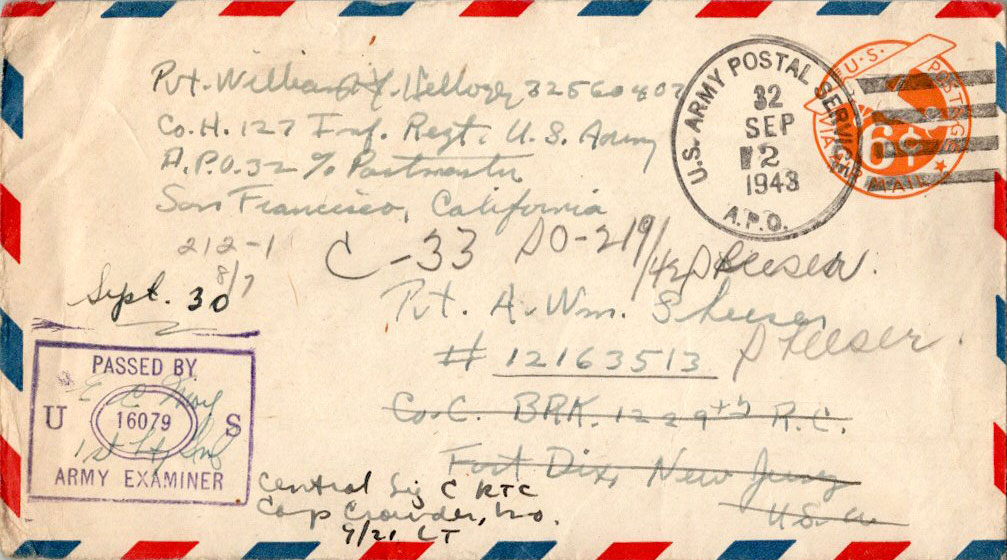 Pvt. William Y. Kellogg 32560407
Co. H. 127 Inf. Regt. U. S. Army
A.P.O. 32 % Postmaster
San Francisco, California
U.S. ARMY POSTAL SERVICE
32
SEP
2
1943
A.P.O.
U.S. POSTAGE
6¢
VIA AIR MAIL
212-1
8/7
C-33 DO-219/42 Sheeser.
Sept. 30
Pvt. A. Wm. Sheeser
Sheeser.
# 12163513
Co. C. BRK. 1229th R.C.
Fort Dix, New Jersey
U.S.A.
PASSED BY
U 16079 S
1st Lt Inf
ARMY EXAMINER
Central Sig C RTC
Camp Crowder, Mo.
9/21 LT